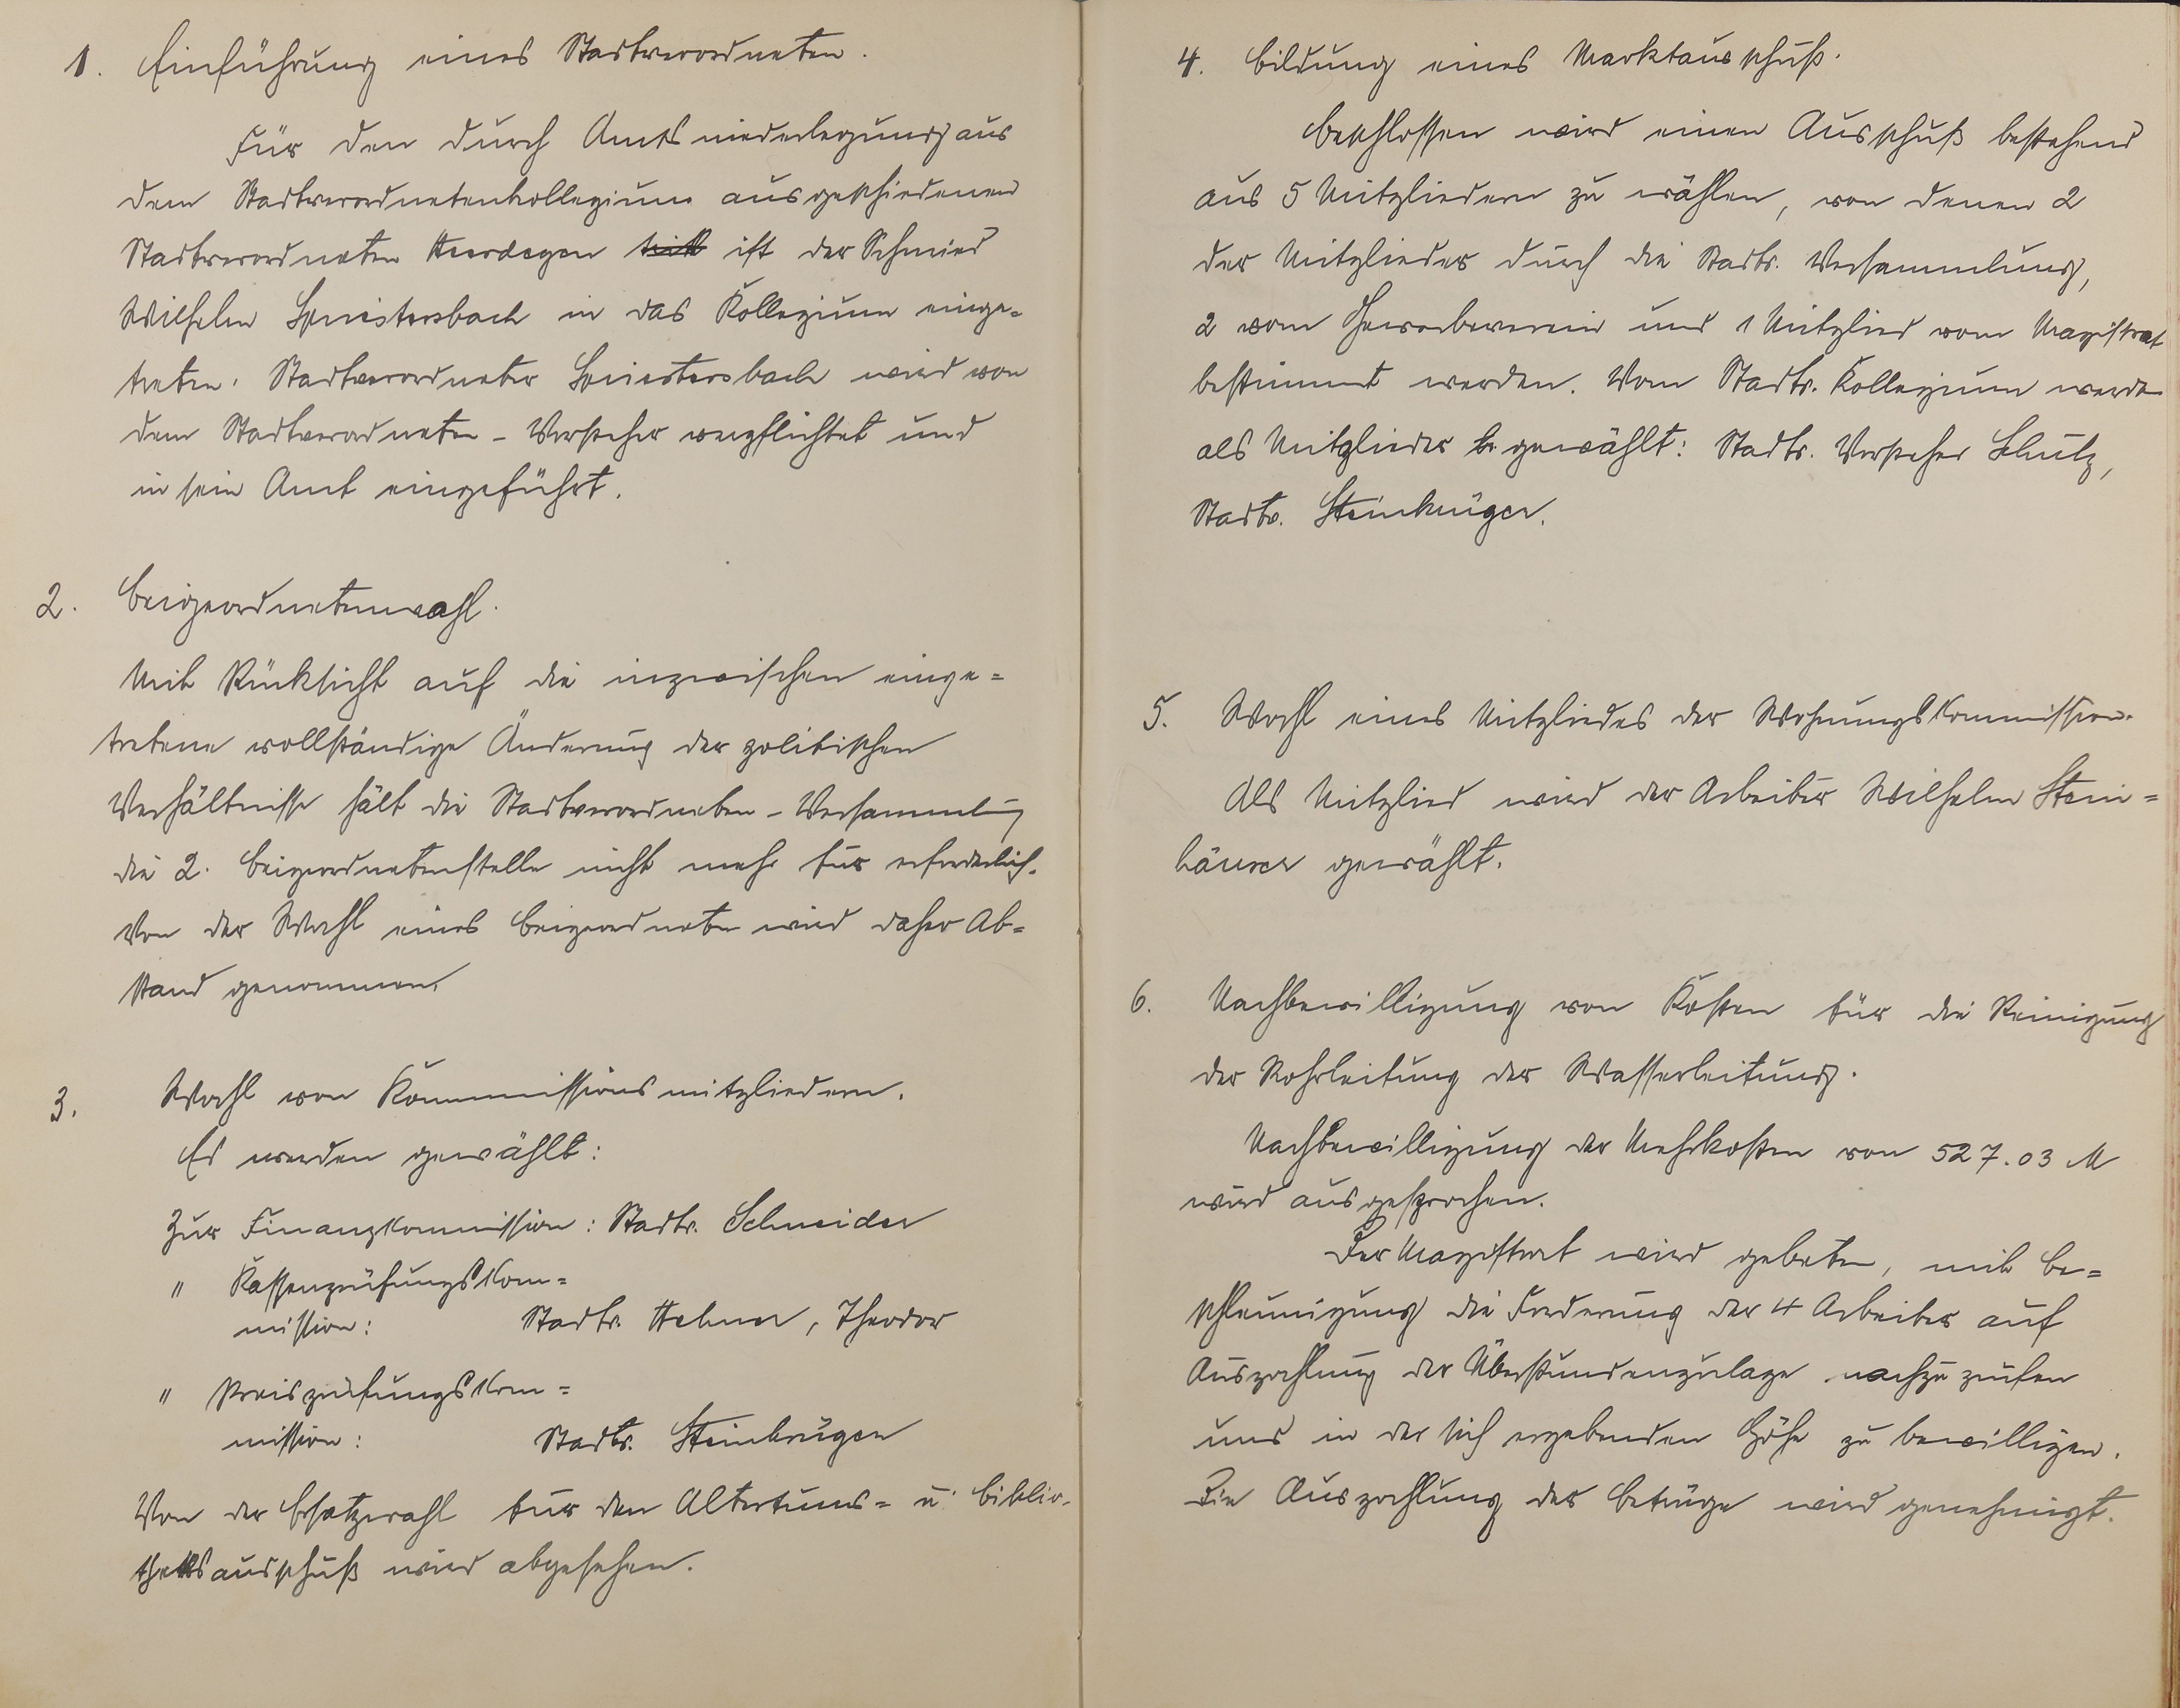 1. Einführung eines Stadtverordneten.
Für den durch Amtsniederlegung aus
dem Stadtverordnetenkollegium ausgeschiedenen
Stadtverordneten Heerdegen tritt ist der Schmied
Wilhelm Spriestersbach in das Kollegium einge-
treten. Stadtverordneter Spriestersbach wird von
dem Stadtverordneten-Vorsteher verpflichtet und
in sein Amt eingeführt.
2. Beigeordnetenwahl.
Mit Rücksicht auf die inzwischen einge-
tretene vollständige Änderung der politischen
Verhältnisse hält die Stadtverordneten-Versammlung
die 2. Beigeordnetenstelle nicht mehr für erforderlich.
Von der Wahl eines Beigeordneten wird daher Ab-
stand genommen.
3. Wahl von Kommissionsmitgliedern.
Es werden gewählt:
Zur Finanzkommission: Stadtv. Schneider
" Kassenprüfungskom-
mission: Stadtv. Hehner, Theodor
" Preisprüfungskom-
mission: Stadtv. Steinbrügen
Von der Ersatzwahl für den Altertums- u. Biblio-
theksausschuß wird abgesehen.
4. Bildung eines Marktausschuß.
Beschlossen wird einen Ausschuß bestehend
aus 5 Mitgliedern zu wählen, von denen 2
der Mitglieder durch die Stadtv. Versammlung,
2 vom Gewerbeverein und 1 Mitglied vom Magistrat
bestimmt werden. Vom Stadtv. Kollegium werden
als Mitglieder gewählt: Stadtv. Vorsteher Schütz,
Stadtv. Steinbrügen.
5. Wahl eines Mitgliedes der Wohnungskommission.
Als Mitglied wird der Arbeiter Wilhelm Stein-
häuser gewählt.
6. Nachbewilligung von Kosten für die Reinigung
der Rohrleitung der Wasserleitung.
Nachbewilligung der Mehrkosten von 527.03 M
wird ausgesprochen.
Der Magistrat wird gebeten, mit Be-
schleunigung die Forderung der 4 Arbeiter auf
Auszahlung der Überstundenzulage nachzuprüfen
und in der sich ergebenden Höhe zu bewilligen.
Die Auszahlung der Beträge wird genehmigt.